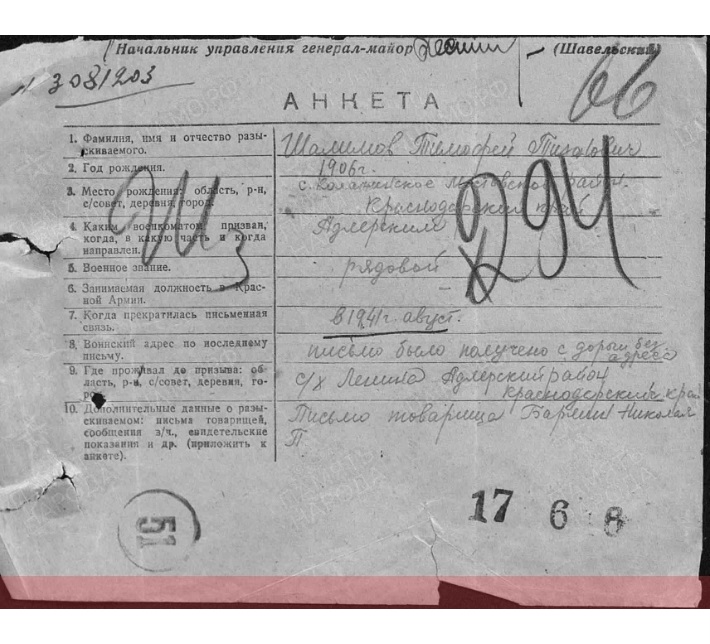 Начальник управления генерал-майор (Шавельский)
3081203
66
АНКЕТА
1. Фамилия, имя и отчество разы-
скиваемого.
Шалимов Тимофей
2. Год рождения.
1906 г.
3. Место рождения: область, р-н,
с/совет, деревня, город.
Краснодарский край
4. Каким военкоматом призван,
когда, в какую часть и когда
направлен.
Адлерским
5. Военное звание.
рядовой
6. Занимаемая должность в Крас-
ной Армии.
7. Когда прекратилась письменная
связь.
в 1941 г. август.
8. Воинский адрес по последнему
письму.
письмо было получено с дороги без
адреса
9. Где проживал до призыва: об-
ласть, р-н, с/совет, деревня, го-
с/х Ленина Адлерский район
Краснодарский край
10. Дополнительные данные о разы-
скиваемом: письма товарищей,
сообщения в/ч., свидетельские
показания и др. (приложить к
анкете).
Письмо товарища
П
51
17 6 8